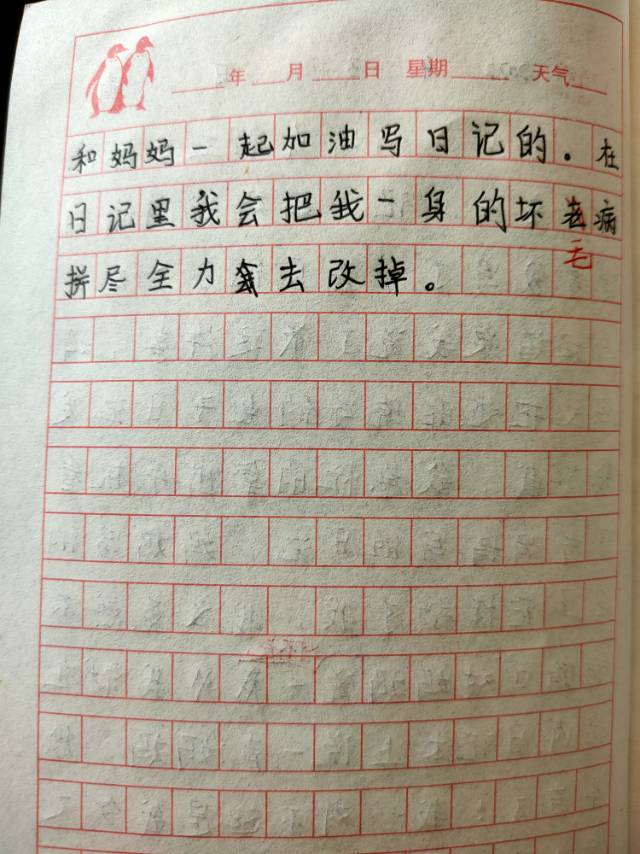 年 月 日 星期 天气
和妈妈一起加油写日记的。在
日记里我会把我一身的坏老病
毛
拼尽全力去改掉。